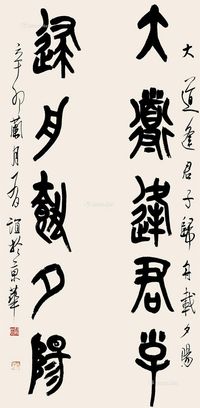 大道逢君子歸舟載夕陽
大道逢君子
歸舟載夕陽
辛卯蘭月誼於京華